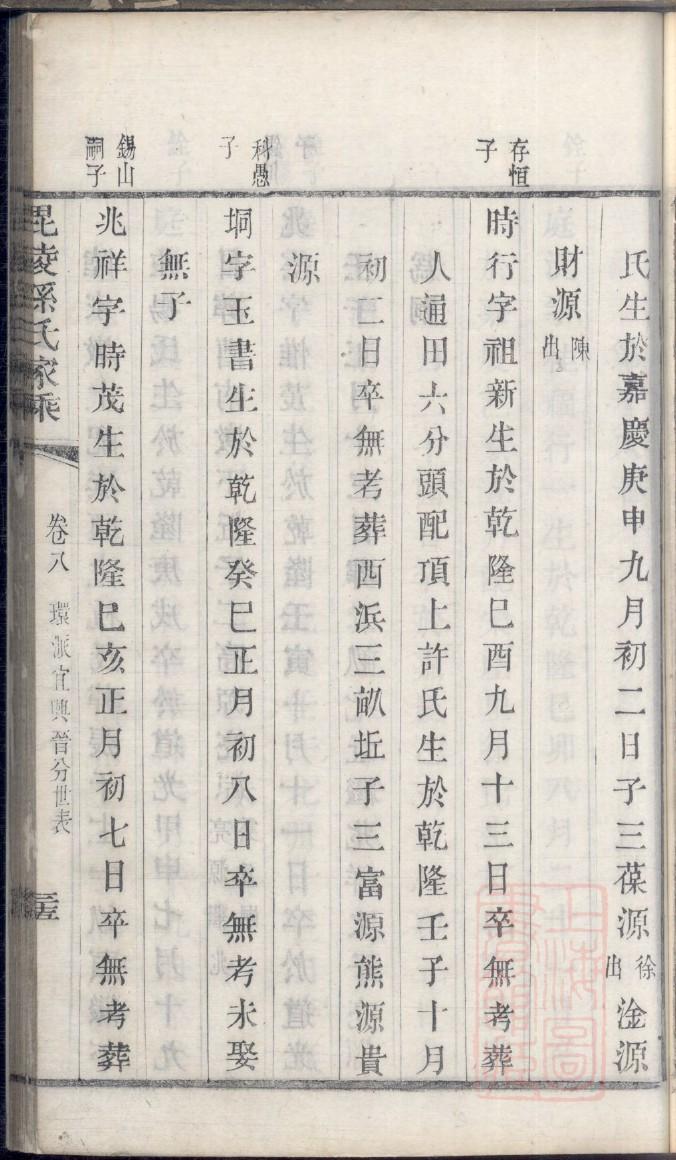 氏生於嘉慶庚申九月初二日子三葆源徐出淦源
財源陳出
存恒子
時行字祖新生於乾隆巳酉九月十三日卒無考葬
人逼田六分頭配項上許氏生於乾隆壬子十月
初二日卒無考葬西浜三畝坵子三富源熊源貴
源
科愚子
坰字玉書生於乾隆癸巳正月初八日卒無考未娶
無子
錫山嗣子
兆祥字時茂生於乾隆巳亥正月初七日卒無考葬
毘陵孫氏家乘
卷八
環派宜興晉分世表